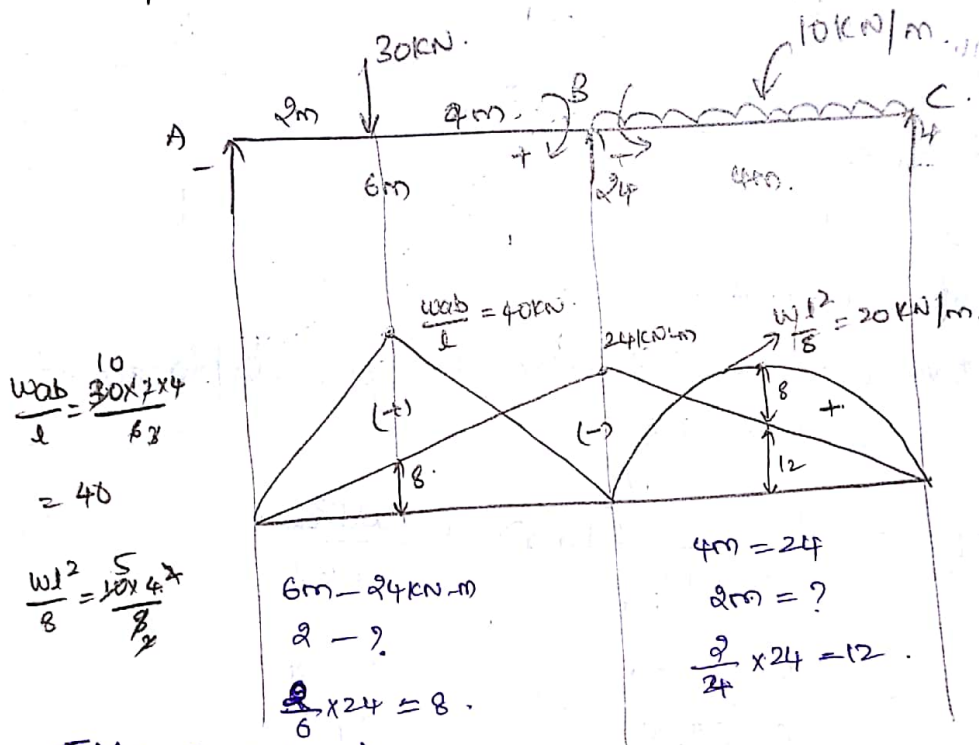 30KN.
10KN/m.
A
2m
4m.
B
C.
+
+
-
6m
24
4m.
wab/l = 40KN.
24KN-m
wl²/8 = 20KN/m.
(+)
(-)
8
+
8.
12
wab/l = 10 30x2x4/6 3
= 40
wl²/8 = 5 10x4²/8 2
6m-24KN-m
2 - ?
2/6 x24 = 8.
4m = 24
2m = ?
2/24 x24 =12.